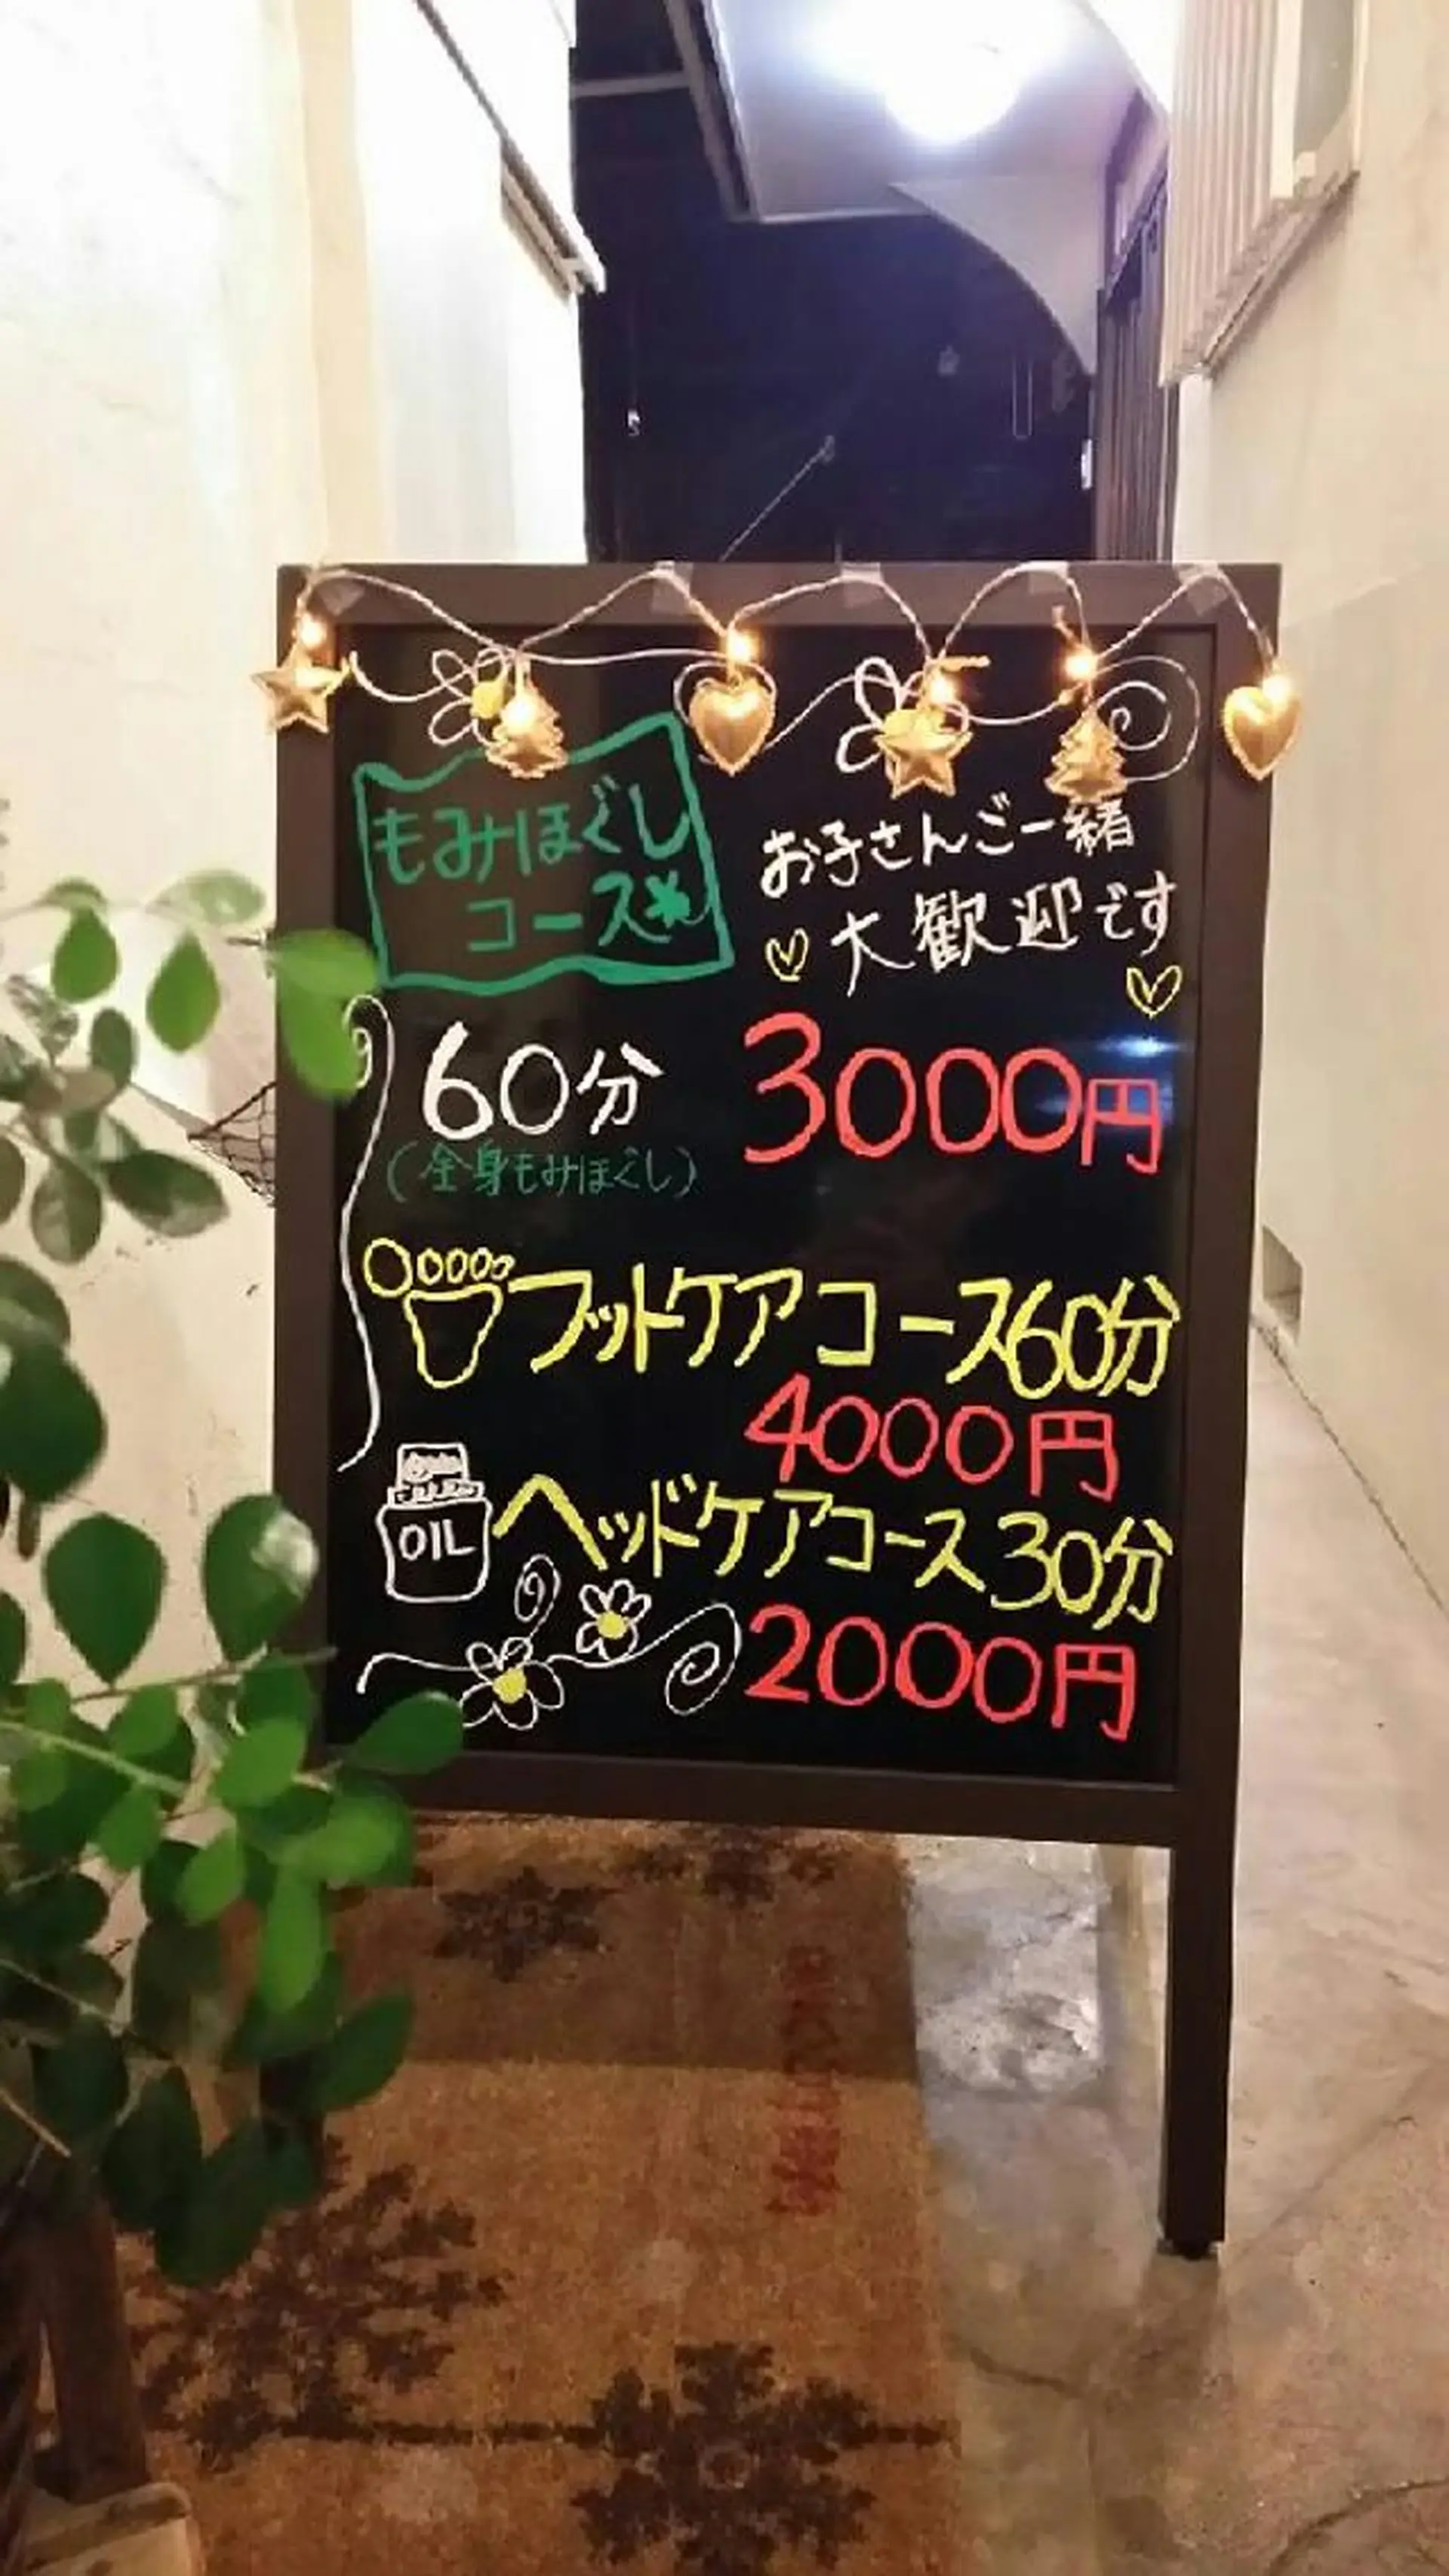 もみほぐし
コース*
お子さんご一緒
大歓迎です
60分
3000円
(全身もみほぐし)
フットケアコース60分
4000円
OIL
ヘッドケアコース30分
2000円